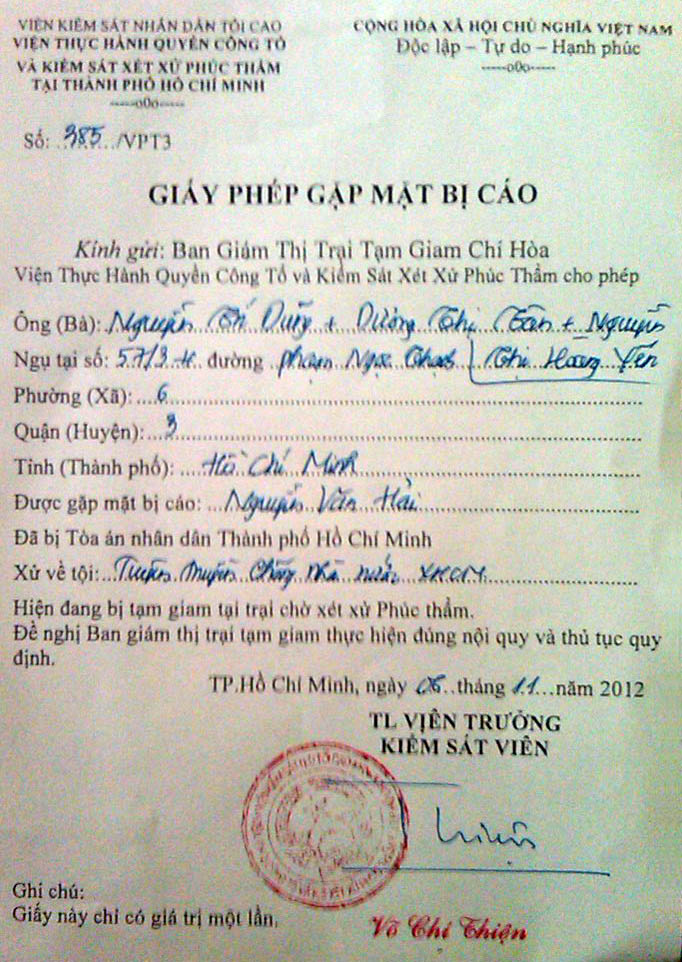 VIỆN KIỂM SÁT NHÂN DÂN TỐI CAO
VIỆN THỰC HÀNH QUYỀN CÔNG TỐ
VÀ KIỂM SÁT XÉT XỬ PHÚC THẨM
TẠI THÀNH PHỐ HỒ CHÍ MINH
-----o0o-----
CỘNG HÒA XÃ HỘI CHỦ NGHĨA VIỆT NAM
Độc lập – Tự do – Hạnh phúc
-----o0o-----
Số: 385/VPT3
GIẤY PHÉP GẶP MẶT BỊ CÁO
Kính gửi: Ban Giám Thị Trại Tạm Giam Chí Hòa
Viện Thực Hành Quyền Công Tố và Kiểm Sát Xét Xử Phúc Thẩm cho phép
Ông (Bà): Nguyễn Trí Dũng + Dương Thị Tân + Nguyễn
Ngụ tại số: 57/3 đường Phạm Ngọc Thạch Thị Hoàng Yến
Phường (Xã): 6
Quận (Huyện): 3
Tỉnh (Thành phố): Hồ Chí Minh
Được gặp mặt bị cáo: Nguyễn Văn Hải
Đã bị Tòa án nhân dân Thành phố Hồ Chí Minh
Xử về tội: Tuyên truyền Chống nhà nước XHCN
Hiện đang bị tạm giam tại trại chờ xét xử Phúc thẩm.
Đề nghị Ban giám thị trại tạm giam thực hiện đúng nội quy và thủ tục quy
định.
TP.Hồ Chí Minh, ngày 06 tháng 11 năm 2012
TL VIỆN TRƯỞNG
KIỂM SÁT VIÊN
Ghi chú:
Giấy này chỉ có giá trị một lần.
Võ Chí Thiện